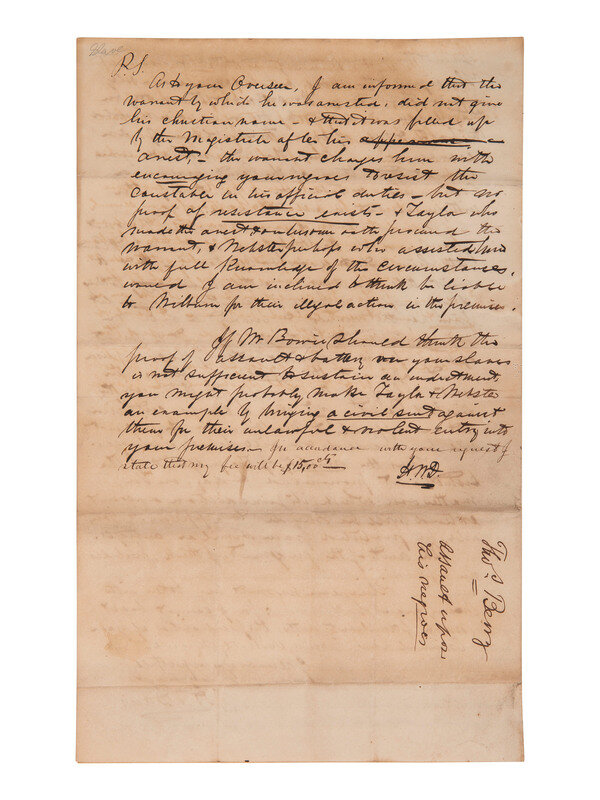 Slave
P.S.
As to your Overseer, I am informed that the
warrant by which he was arrested, did not give
his christian name - & that it was filled up
by the Magistrate after his appearance
arrest, - the warrant charges him with
encouraging your negroes to resist the
constable in his official duties - but no
proof of resistance exists - & Taylor who
made the arrest & on whose oath procured the
warrant, & Webster perhaps who assisted him
with full knowledge of the circumstances,
would I am inclined to think be liable
to William for their illegal action in the premises.
If Mr Bowie should think the
proof of assault & battery over your slaves
is not sufficient to sustain an indictment,
you might probably make Taylor & Webster
an example by bringing a civil suit against
them for their unlawful & violent entry into
your premises - In accordance with your request I
state that my fee will be $15,00 cts
Thos. Berry
Assault upon
his negroes